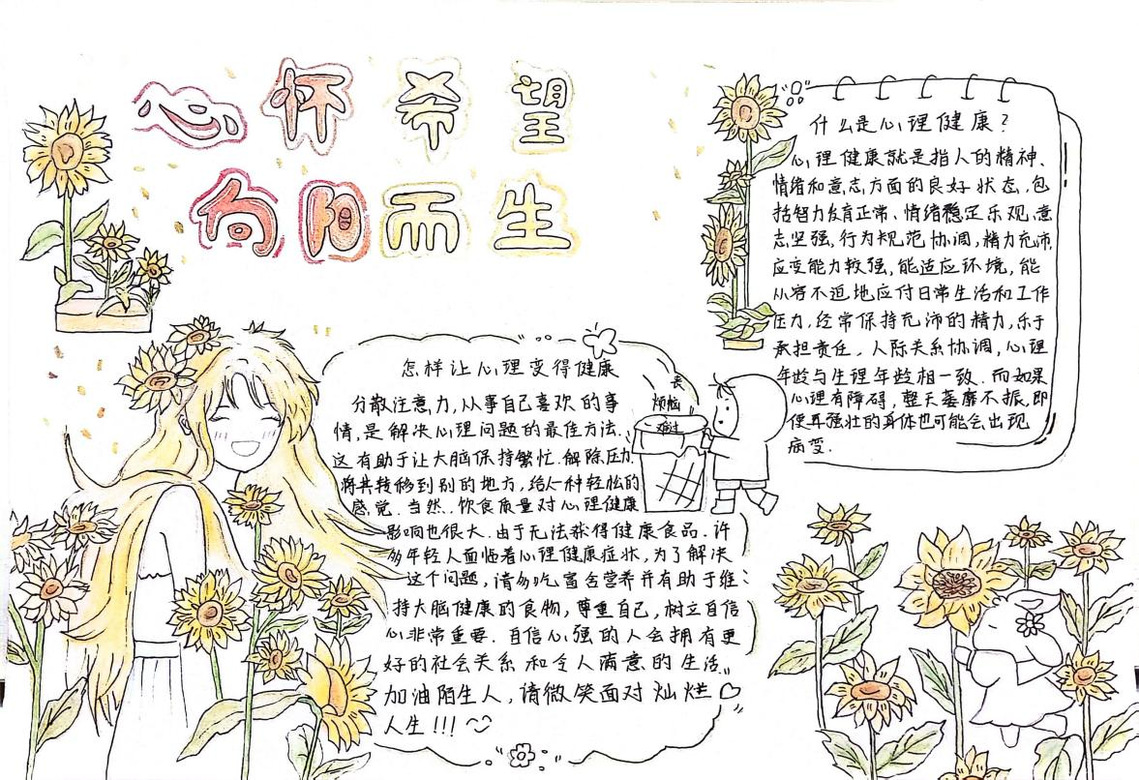 心怀希望
向阳而生
什么是心理健康?
心理健康就是指人的精神、
情绪和意志方面的良好状态,包
括智力发育正常、情绪稳定乐观,意
志坚强,行为规范协调,精力充沛,
应变能力较强,能适应环境,能
从容不迫地应付日常生活和工作
压力,经常保持充沛的精力,乐于
承担责任,人际关系协调,心理
年龄与生理年龄相一致.而如果
心理有障碍,整天萎靡不振,即
使再强壮的身体也可能会出现
病变.
怎样让心理变得健康
分散注意力,从事自己喜欢的事
情,是解决心理问题的最佳方法.
这有助于让大脑保持繁忙.解除压力
将其转移到别的地方,给人一种轻松的
感觉.当然.饮食质量对心理健康
影响也很大.由于无法获得健康食品.许
多年轻人面临着心理健康症状,为了解决
这个问题,请多吃富含营养并有助于维
持大脑健康的食物,尊重自己,树立自信
心非常重要.自信心强的人会拥有更
好的社会关系和令人满意的生活.
加油陌生人,请微笑面对灿烂
人生!!!
丧
烦恼
难过